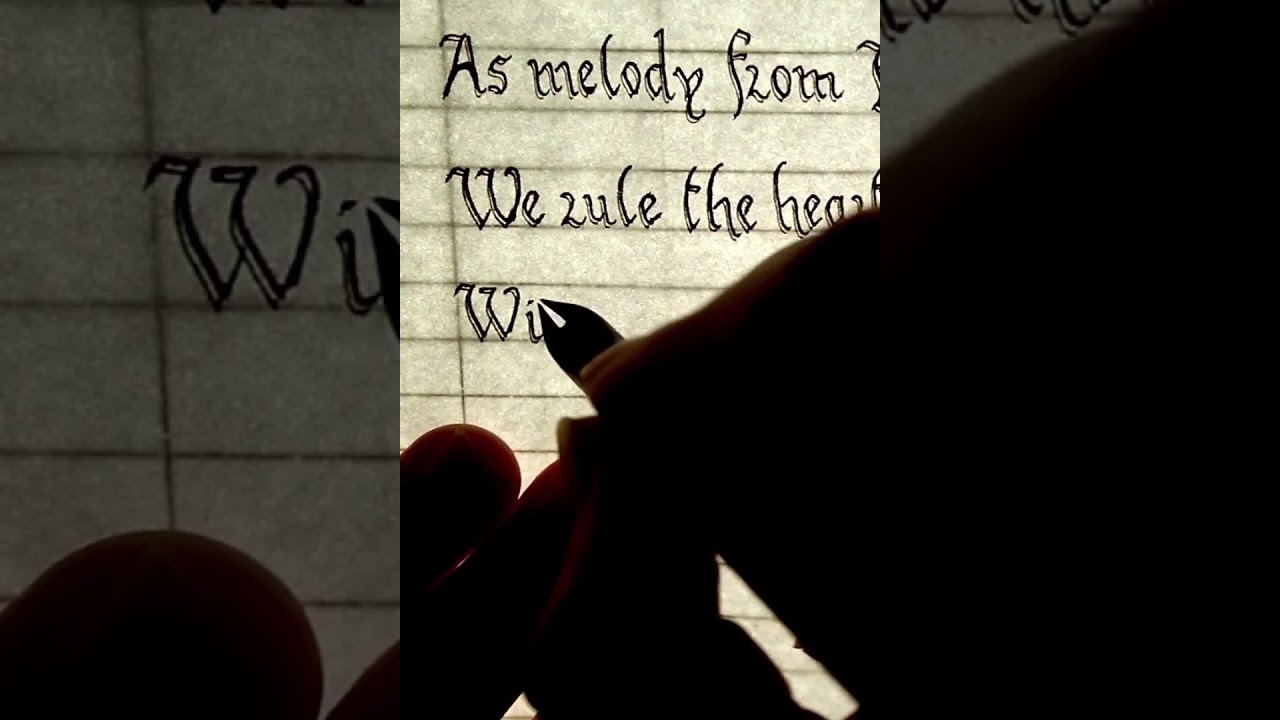 As melody from
We rule the heart
Wi